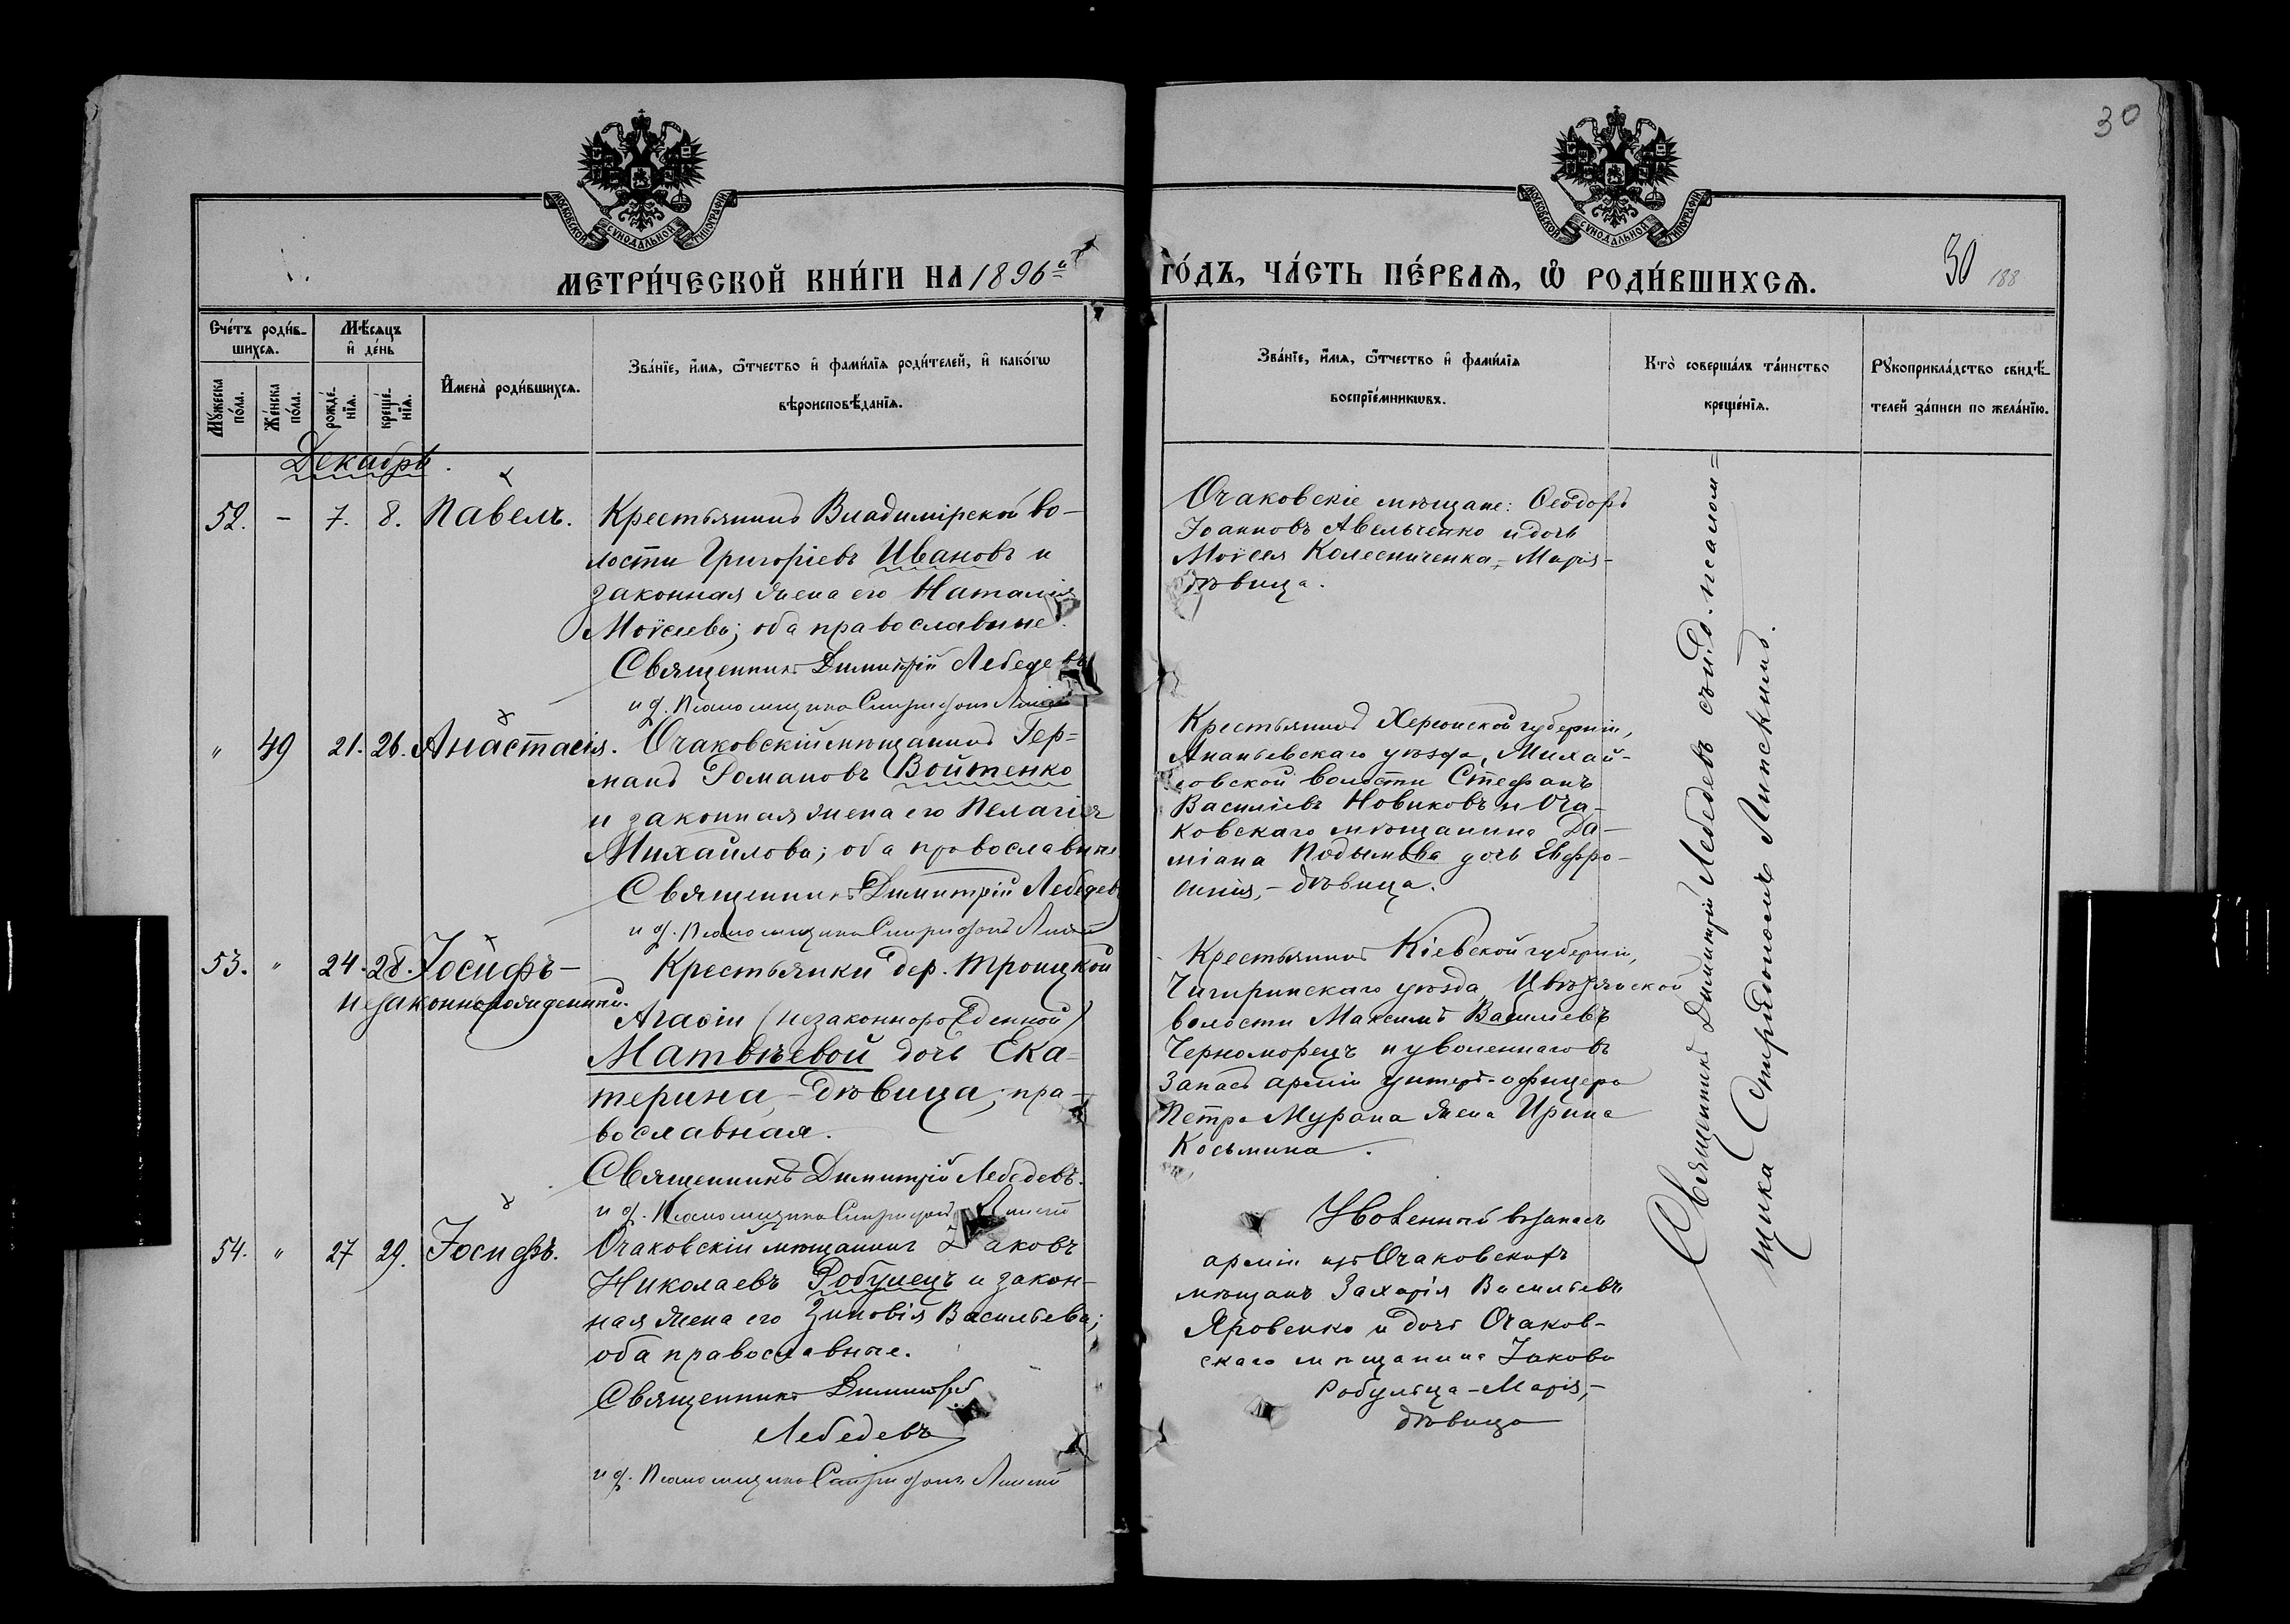 30
МОСКОВСКОЙ СУНОДАЛЬНОЙ ТИПОГРАФІИ
МОСКОВСКОЙ СУНОДАЛЬНОЙ ТИПОГРАФІИ
МЕТРИ́ЧЕСКОЙ КНИ́ГИ НА 1896й
ГО́ДЪ, ЧА́СТЬ ПЕ́РВАѦ, Ѡ҆ РОДИ́ВШИХСѦ.
30 188
Счéтъ роди́в-
шихсѧ.
Мѣ́сѧцъ
и҆ де́нь
Мꙋ́жеска
по́ла.
Же́нска
по́ла.
рожде́-
нїѧ.
креще́-
нїѧ.
И҆мена̀ роди́вшихсѧ.
Зва́нїе, и҆́мѧ, ѻ҆́тчество и҆ фами́лїѧ роди́телей, и҆ како́гѡ
вѣроисповѣ́данїѧ.
Зва́нїе, и҆́мѧ, ѻ҆́тчество и҆ фами́лїѧ
воспрїе́мникѡвъ.
Кто̀ соверша́лъ та́инство
креще́нїѧ.
Рꙋкоприкла́дство свидѣ́-
телей за́писи по жела́нїю.
Декабрь.
52. - 7. 8. Павелъ.
Крестьянинъ Владимірской во-
лости Григоріевъ Ивановъ и
законная жена его Наталія
Моѵсеева; оба православные.
Священникъ Димитрій Лебедевъ
и д. Псаломщика Спиридонъ Липскій
Очаковскіе мѣщане: Ѳеодоръ
Іоанновъ Авельченко и дочь
Моѵсея Колесниченка,- Марія-
дѣвица.
" 49 21. 26. Анастасія.
Очаковскій мѣщанинъ Гер=
манъ Романовъ Войтенко
и законная жена его Пелагія
Михаилова; оба православные
Священникъ Димитрій Лебедевъ
и д. Псаломщика Спиридонъ Липскій
Крестьянинъ Херсонской губерніи,
Ананьевскаго уѣзда, Михай-
ловской волости Стефанъ
Василіевъ Новиковъ и Оча-
ковскаго мѣщанина Да-
міана Подымова дочь Евфро-
синія,- дѣвица.
53. " 24. 28. Іосифъ-
незаконнорожденный.
Крестьянки дер. Троицкой
Агаѳіи (незаконнорожденной)
Матвѣевой дочь Ека=
терина,- дѣвица; пра-
вославная.
Священникъ Димитрій Лебедевъ.
и д. Псаломщика Спиридонъ Липскій
Крестьянинъ Кіевской губерніи,
Чигиринскаго уѣзда,
волости Максимъ Василіевъ
Черноморецъ и уволеннаго въ
запасъ арміи унтеръ-офицера
Петра Мурана жена Ирина
Косьмина.
54. " 27 29. Іосифъ.
Очаковскій мѣщанинъ Іаковъ
Николаевъ Робулецъ и закон-
ная жена его Зиновія Васильева;
оба православные.
Священникъ Димитрій
Лебедевъ
и д. Псаломщика Спиридонъ Липскій
Уволенный въ запасъ
арміи изъ Очаковскихъ
мѣщанъ Захарія Васильевъ
Яровенко и дочь Очаков-
скаго мѣщанина Іакова
Робульца - Марія,-
дѣвица
Священникъ Димитрій Лебедевъ съ и. д. псалом=
щика Спиридономъ Липскимъ.